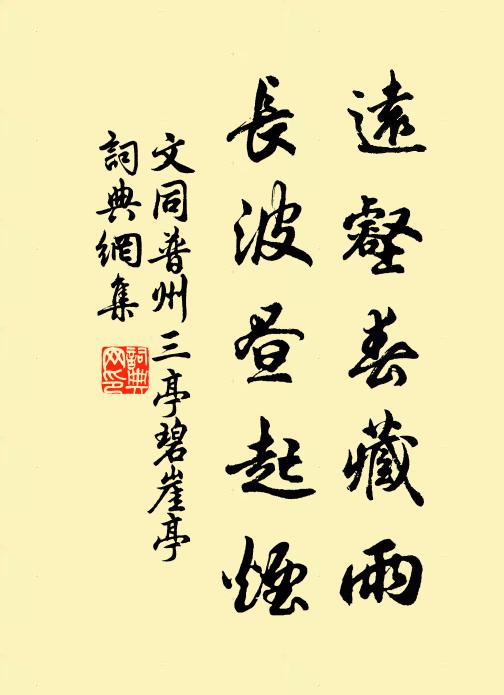 遠壑春藏雨
長波晝起煙
文同普州三亭碧崖亭
詞典網集
詞典網印